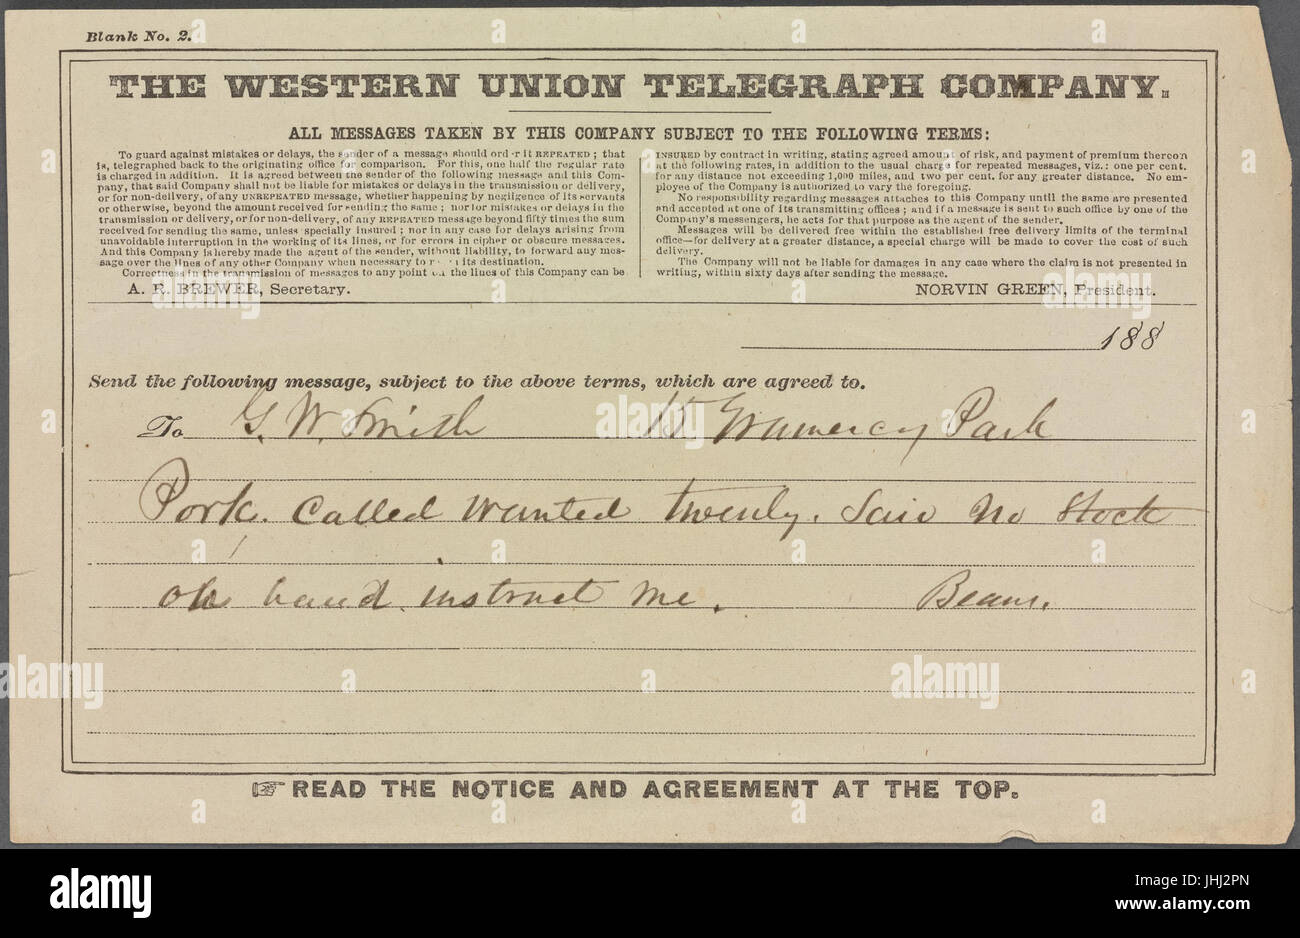 Blank No. 2.
THE WESTERN UNION TELEGRAPH COMPANY.
ALL MESSAGES TAKEN BY THIS COMPANY SUBJECT TO THE FOLLOWING TERMS:
To guard against mistakes or delays, the sender of a message should order it REPEATED; that
is, telegraphed back to the originating office for comparison. For this, one half the regular rate
is charged in addition. It is agreed between the sender of the following message and this Com-
pany, that said Company shall not be liable for mistakes or delays in the transmission or delivery,
or for non-delivery, of any UNREPEATED message, whether happening by negligence of its servants
or otherwise, beyond the amount received for sending the same; nor for mistakes or delays in the
transmission or delivery, or for non-delivery, of any REPEATED message beyond fifty times the sum
received for sending the same, unless specially insured; nor in any case for delays arising from
unavoidable interruption in the working of its lines, or for errors in cipher or obscure messages.
And this Company is hereby made the agent of the sender, without liability, to forward any mes-
sage over the lines of any other Company when necessary to reach its destination.
Correctness in the transmission of messages to any point on the lines of this Company can be
INSURED by contract in writing, stating agreed amount of risk, and payment of premium thereon
at the following rates, in addition to the usual charge for repeated messages, viz.: one per cent.
for any distance not exceeding 1,000 miles, and two per cent. for any greater distance. No em-
ployee of the Company is authorized to vary the foregoing.
No responsibility regarding messages attaches to this Company until the same are presented
and accepted at one of its transmitting offices; and if a message is sent to such office by one of the
Company's messengers, he acts for that purpose as the agent of the sender.
Messages will be delivered free within the established free delivery limits of the terminal
office—for delivery at a greater distance, a special charge will be made to cover the cost of such
delivery.
The Company will not be liable for damages in any case where the claim is not presented in
writing, within sixty days after sending the message.
A. R. BREWER, Secretary. NORVIN GREEN, President.
188
Send the following message, subject to the above terms, which are agreed to.
To G. W. Smith 15 Gramercy Park
Pork. Called wanted twenty. Said no stock
on hand. instruct me. Beam.
☞READ THE NOTICE AND AGREEMENT AT THE TOP.
alamy
Image ID: JHJ2PN
www.alamy.com